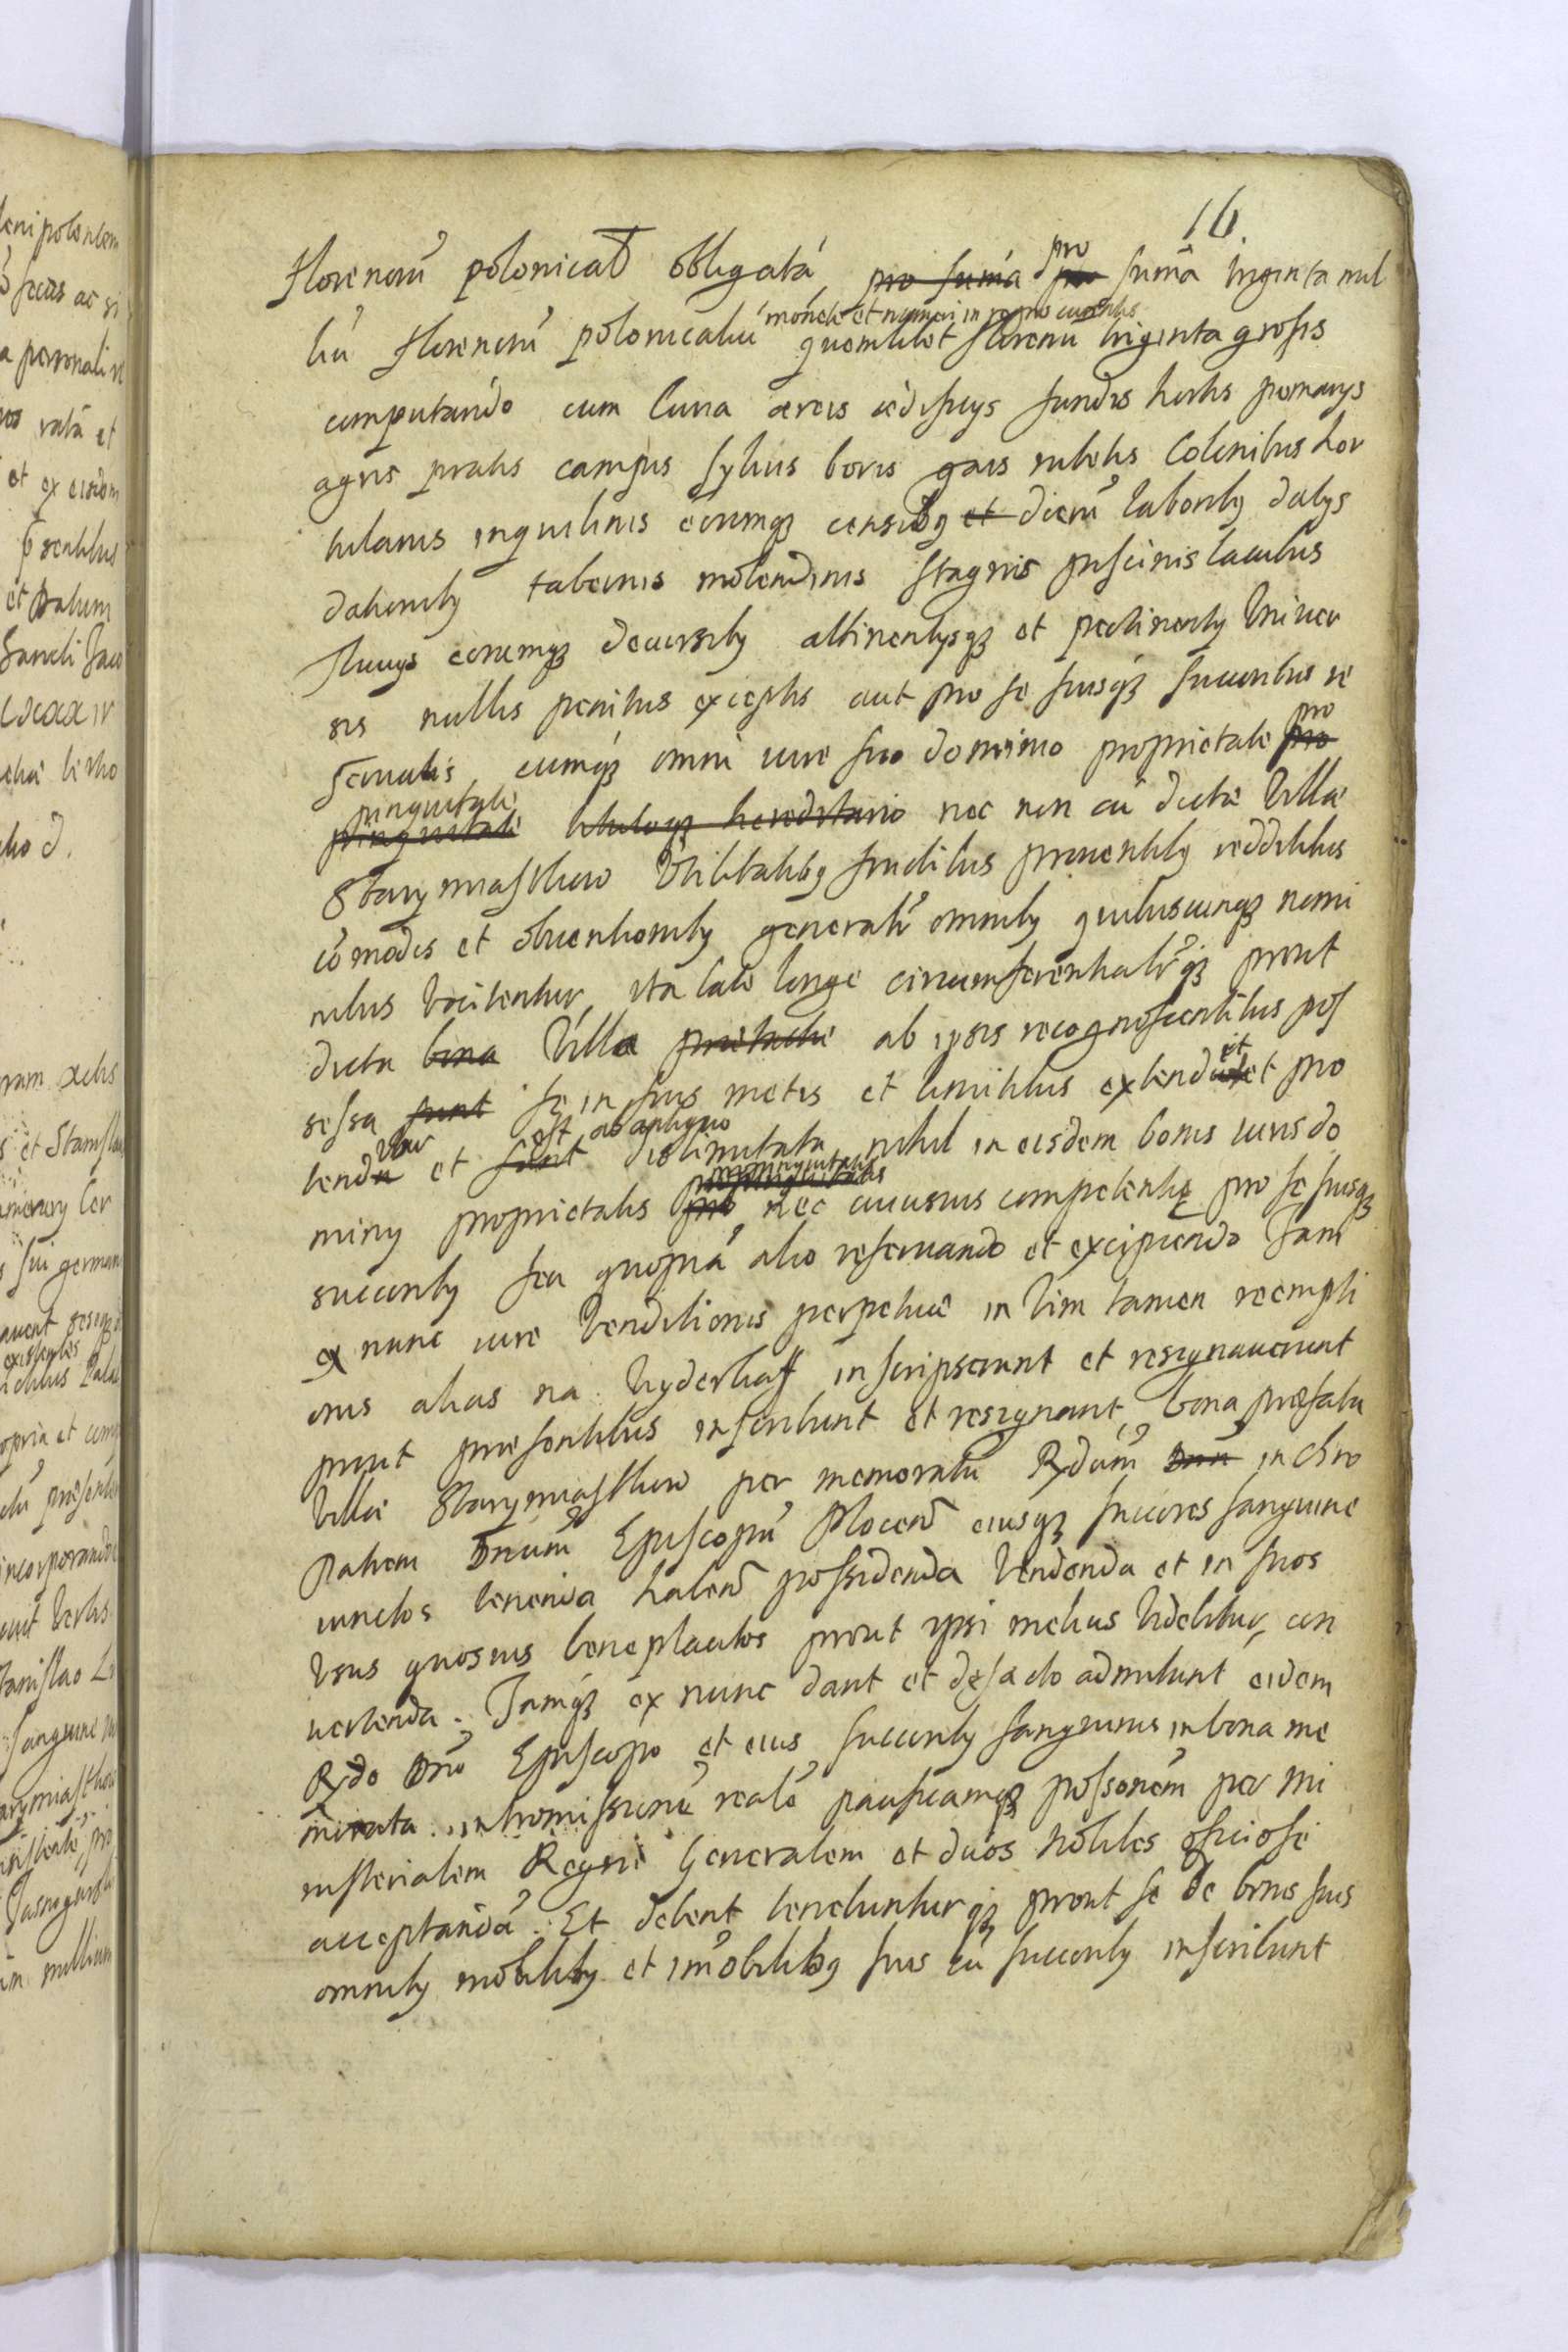 16.
florenorũ polonical obligatá pro sum̃a pro pro sum̃a triginta mil
liũ florenorũ polonicaliũ monete et numeri in regno currentis quemlibet florenũ triginta grossis
computando cum Curia areis ędificys fundis hortis pomarys
agris pratis campis sylvis boris gais rubetis Colonibus hor
tulanis inquilinis eorumqȝ censibȝ et dierũ laboribȝ datys
dationibȝ tabernis molendinis stagnis piscinis lacubus
fluuys eorumqȝ decursibȝ attinentysqȝ et pertinentybȝ Vniuer
sis nullis penitus exceptis aut pro se suisqȝ succoribus re
seruatis, cumqȝ omni iure suo dominio proprietate pro pro
pinquitate pinquitate tituloqȝ hereditario nec non cũ dictę Villę
Starymiasthow Vtilitatibȝ fructibus prouentibȝ redditibus
cõmodis et obuentionibȝ generalr̃ omnibȝ quibuscunqȝ nomi
nibus Vocitentur, ita late longe circumferentialr̃qȝ prout
dicta bona Villa prætactæ ab ipsis recognoscentibus pos
sessa sunt se in suis metis et limitibus extendit et pro
tenditur et sunt est ab antiquo distinctata nihil in eisdem bonis iuris do
miny proprietatis pro propinquitatis nec cuiusuis competentię pro se suisqȝ
succoribȝ seu quopiã alio reseruando et excipiendo Jam
ex nunc iure Venditionis perpetuæ in Vim tamen reempti
onis alias na Vyderkaff inscripserunt et resignauerunt
prout præsentibus inscribunt et resignant, bona præfata
Villæ Starymiasthow per memoratũ Rx̃dum Dnũ in chro
Patrem Dnum̃ Episcopũ Plocen̄ eiusqȝ succores sanguine
iunctos tenenda habend̄ possidenda Vendenda et in suos
Vsus quosuis beneplacitos prout ipsi melius Videbitur, con
uertenda. Jamqȝ ex nunc dant et defacto admittunt eidem
Rx̃do Dnõ Episcopo et eius succoribȝ sanguinis in bona me
morata intromissionẽ realẽ pacificamqȝ possonem̃ per mi
nisterialem Regni Generalem et duos Nobiles officiose
acceptandã. Et debent tenebunturqȝ prout se de bonis suis
omnibȝ mobilibȝ et im̃obilibȝ suis cũ succoribȝ inscribunt